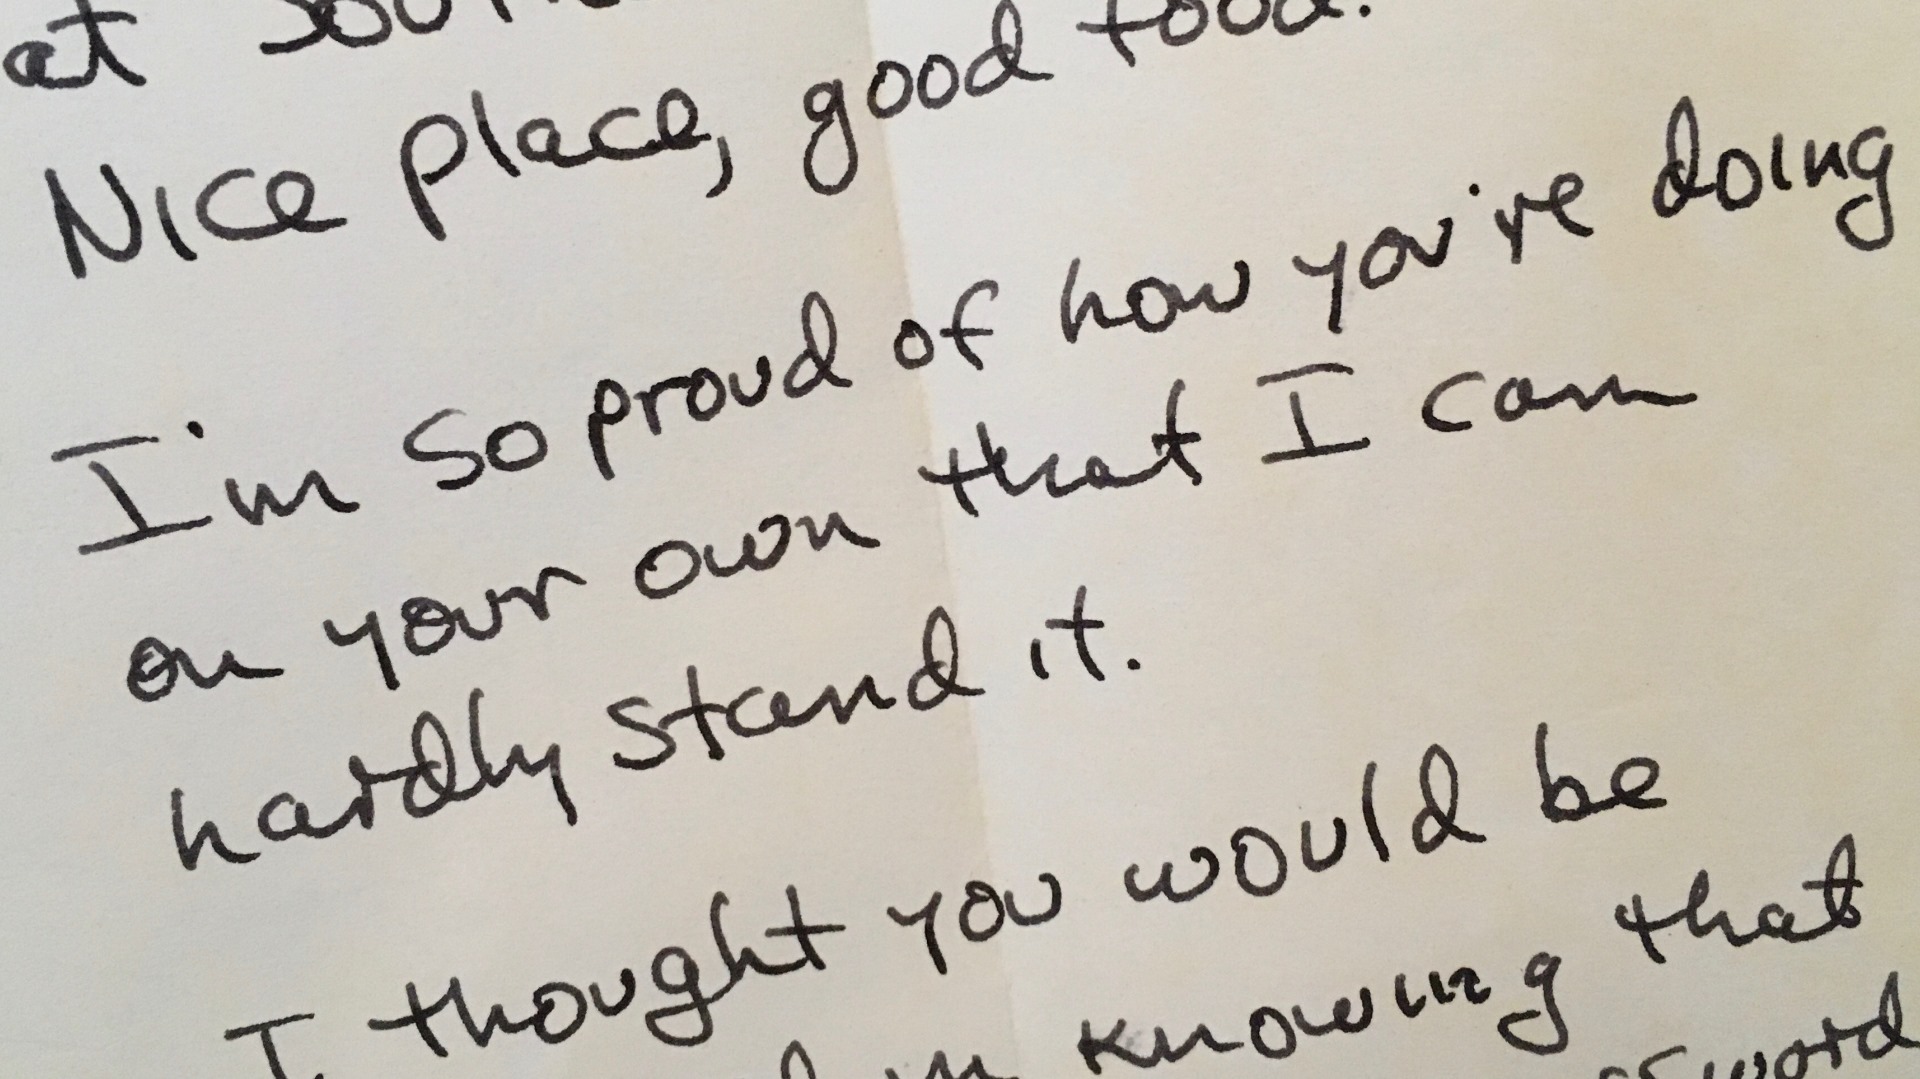 at
Nice place, good food.
I'm so proud of how you're doing
on your own that I can
hardly stand it.
I thought you would be
in knowing that